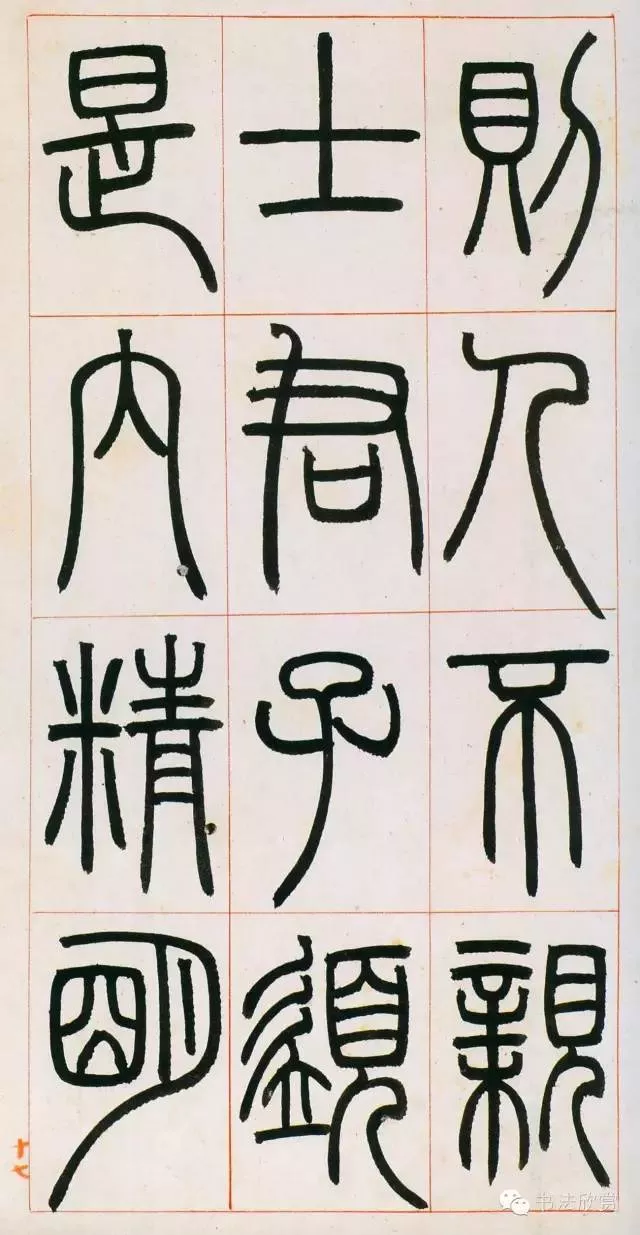 則人不親
士君子須
是内精明
十七
书法欣赏